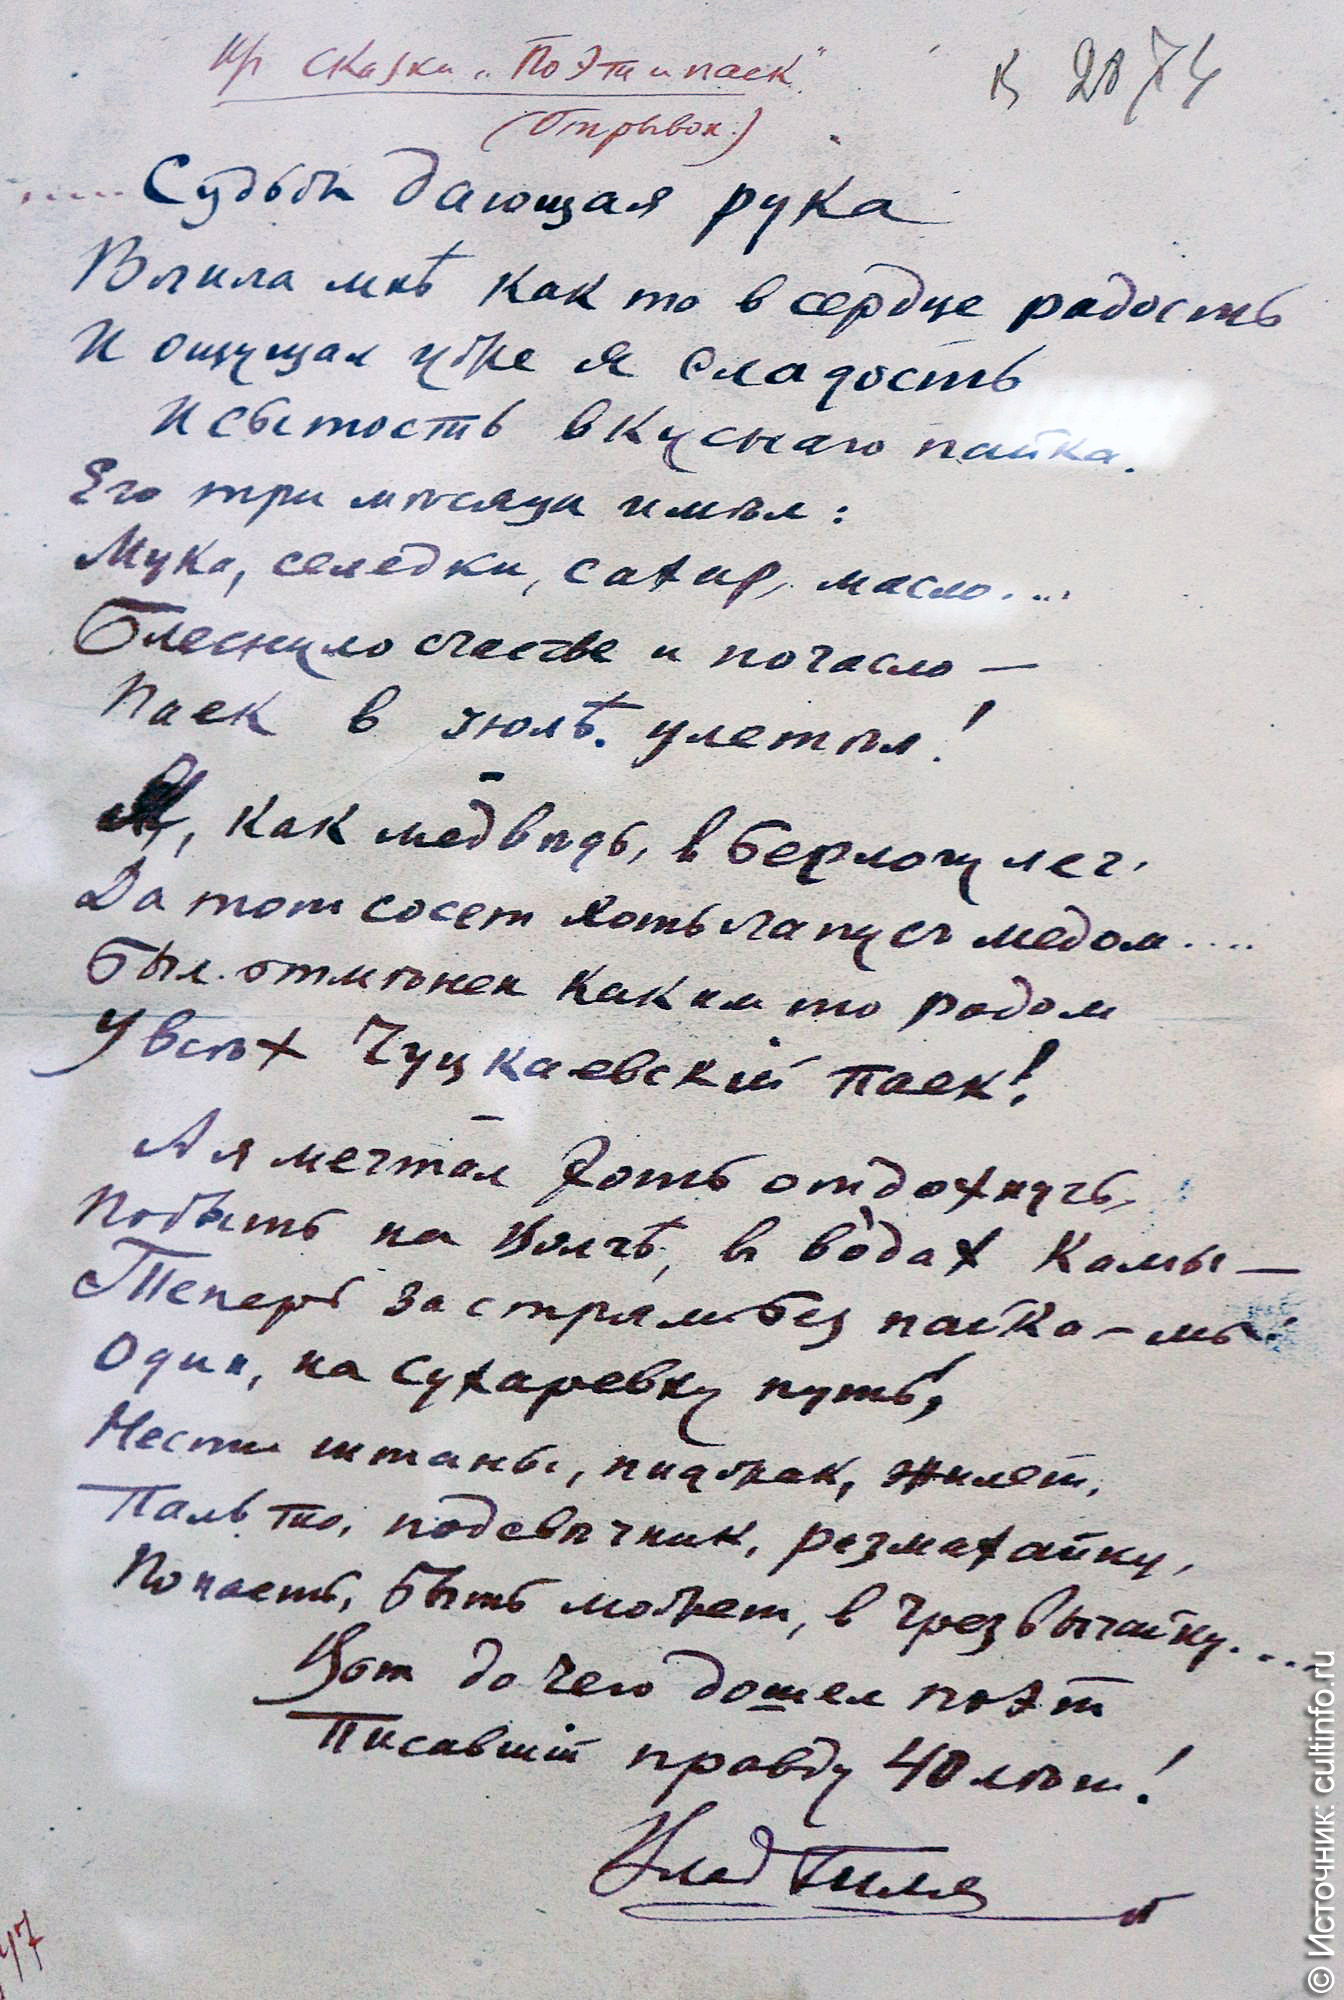 Из сказки „Поэт и паек"
(Отрывок.)
К 2874
..... Судьбы дающая рука
Влила мнѣ как то в сердце радость
И ощущал уже я сладость
И сытость вкуснаго пайка.
Его три мѣсяца имѣл:
Мука, селедки, сахар, масло....
Блеснуло счастье и погасло —
Паек в июлѣ улетѣл!
Я, как медвѣдь, в берлогу лег.
Да тот сосет хоть лапу съ медом....
Был отмѣнен каким то родом
У всѣх Чуцкаевскій паек!
А я мечтал хоть отдохнуть,
Побыть на Волгѣ, в водах Камы —
Теперь застрял без пайка – мы
Один, на Сухаревку путь!
Нести штаны, пиджак, жилет,
Пальто, подсвѣчник, размахайку,
Попасть, быть может, в чрезвычайку....
Вот до чего дошел поэт
Писавшій правду 40 лѣт!
Влад Гиля
47
© Источник: cultinfo.ru